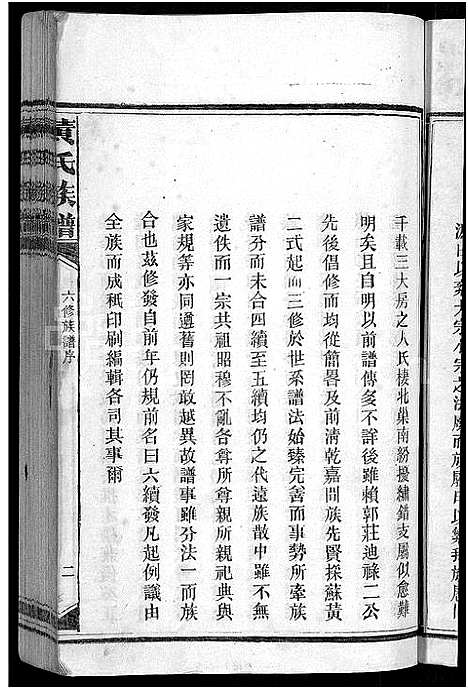 千載三大房之人氏棲北巢南紛擾繡錯支屬似愈難
明矣且自明以前譜傳多不詳後雖賴郭莊迪祿二公
先後倡修而均從簡畧及前清乾嘉間族先賢採蘇黃
二式起而三修於世系譜法始臻完善而事勢所牽族
譜分而未合四續至五續均仍之代遠族散中雖不無
遺佚而一宗共祖昭穆不亂各尊所尊親所親祀典與
家規等亦同遵舊則罔敢越異故譜事雖分法一而族
合也茲修發自前年仍規前名曰六續發凡起例議由
全族而成秖印刷編輯各司其事爾
黃氏族譜
六修族譜序
二